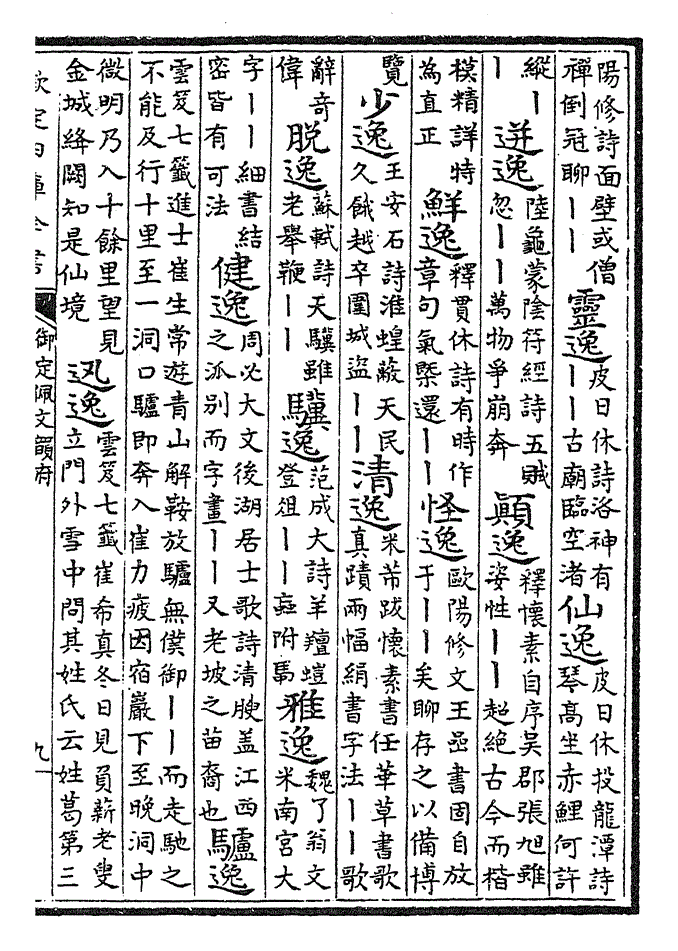 陽修詩面壁或僧禪倒冠聊丨丨 靈逸 皮日休詩洛神有丨丨古廟臨空渚 仙逸 皮日休投龍潭詩琴髙坐赤鯉何許
縱丨丨 迸逸 陸龜蒙陰符經詩五賊忽丨丨萬物爭崩奔 顚逸 釋懷素自序吳郡張旭雖姿性丨丨超絕古今而楷
模精詳特為直正 鮮逸 釋貫休詩有時作章句氣槩還丨丨 怪逸 歐陽修文王書固自放于丨丨矣聊存之以備博
覽 少逸 王安石詩淮蝗蔽天民久餓越卒圍城盜丨丨 清逸 米芾跋懷素書任華草書歌真蹟兩幅絹書字法丨丨歌
辭奇偉 脱逸 蘇軾詩天驥雖老舉鞭丨丨 驥逸 范成大詩羊羶愷登俎丨丨蝱附馬 雅逸 魏了翁文米南宮大
字丨丨細書結密皆有可法 健逸 周必大文後湖居士歌詩清腴盖江西之派别而字畫丨丨又老坡之苗裔也 驢逸
雲笈七籤進士崔生常遊青山解鞍放驢無僕御丨丨而走馳之不能及行十里至一洞口驢即奔入崔力疲因宿巖下至晚洞中
微明乃入十餘里望見金城絳闕知是仙境 迅逸 雲笈七籤崔希真冬日見負薪老叟立門外雪中問其姓氏云姓葛第三
欽定四庫全書 御定佩文韻府 九